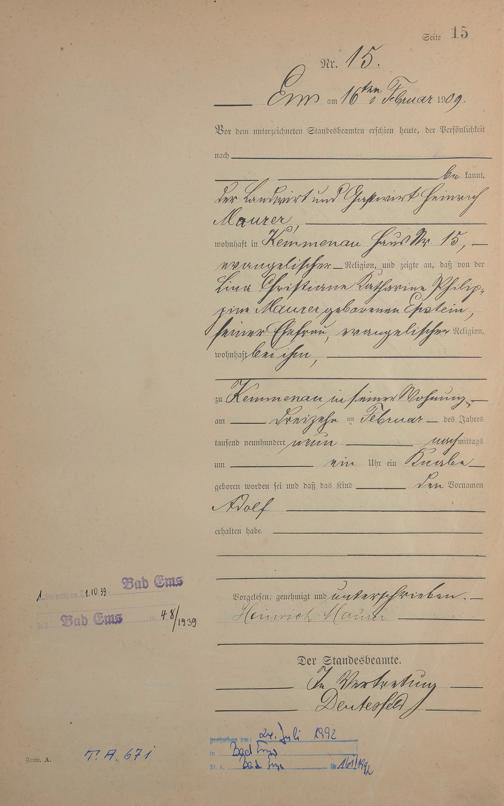 Seite 15
Nr. 15.
Ems am 16ten Februar 1909.
Vor dem unterzeichneten Standesbeamten erschien heute, der Persönlichkeit
nach
be kannt,
der Landwirt und Gastwirt Heinrich
Maurer,
wohnhaft in Kemmenau Haus Nr. 15,
evangelischer Religion, und zeigte an, daß von der
Lina Christiane Katharine Philip-
pine Maurer geborenen Epstein,
seiner Ehefrau, evangelischer Religion,
wohnhaft bei ihm,
zu Kemmenau in seiner Wohnung
am dreizehn ten Februar des Jahres
tausend neunhundert neun nachmittags
um ein Uhr ein Knabe
geboren worden sei und daß das Kind den Vornamen
Adolf
erhalten habe.
Vorgelesen, genehmigt und unterschrieben.
Heinrich Maurer
Der Standesbeamte.
In Vertretung
1. 2.10.39 Bad Ems
Bad Ems 48/1939
gestorben am: 24. Juli 1992
in Bad Ems
St. A. Bad Ems Nr. 161/1992
Form. A.
T. A. 671